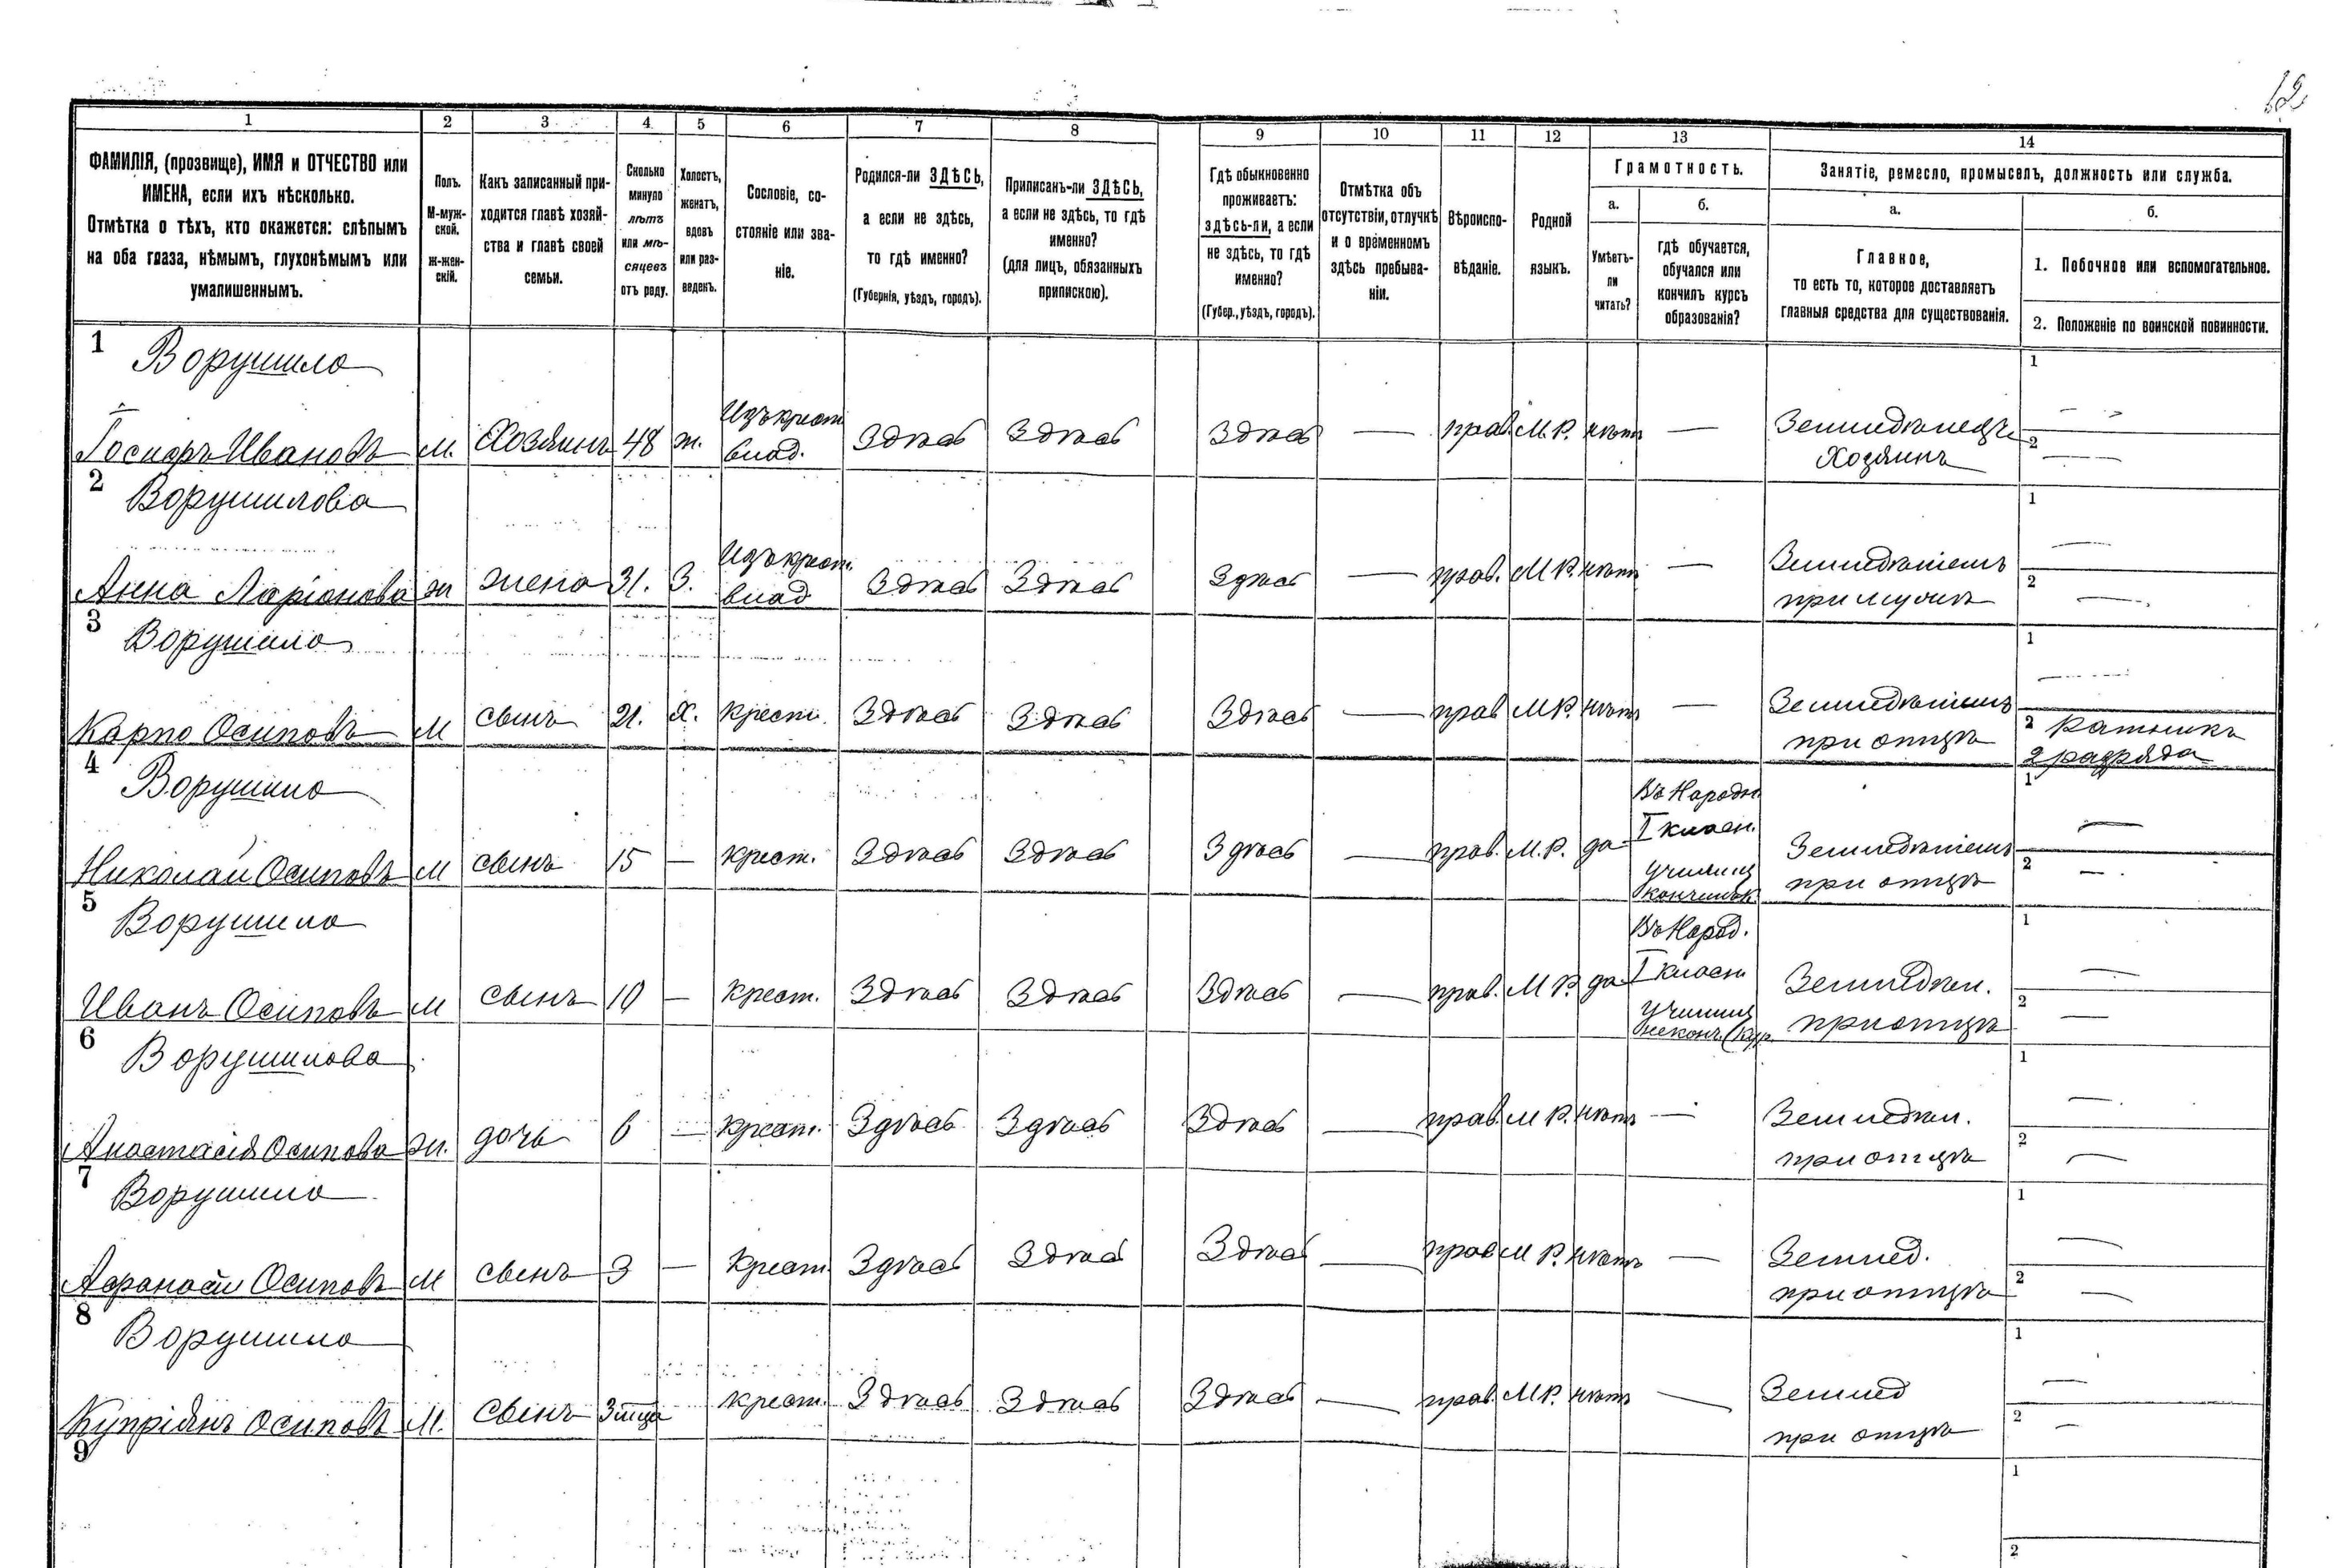 12
1 2 3 4 5 6 7 8 9 10 11 12 13 14
ФАМИЛІЯ, (прозвище), ИМЯ и ОТЧЕСТВО или
ИМЕНА, если ихъ нѣсколько.
Отмѣтка о тѣхъ, кто окажется: слѣпымъ
на оба глаза, нѣмымъ, глухонѣмымъ или
умалишеннымъ.
Полъ.
М-муж-
ской.
Ж-жен-
скій.
Какъ записанный при-
ходится главѣ хозяй-
ства и главѣ своей
семьи.
Сколько
минуло
лѣтъ
или мѣ-
сяцевъ
отъ роду.
Холостъ,
женатъ,
вдовъ
или раз-
веденъ.
Сословіе, со-
стояніе или зва-
ніе.
Родился-ли ЗДѢСЬ,
а если не здѣсь,
то гдѣ именно?
(Губернія, уѣздъ, городъ).
Приписанъ-ли ЗДѢСЬ,
а если не здѣсь, то гдѣ
именно?
(для лицъ, обязанныхъ
припискою).
Гдѣ обыкновенно
проживаетъ:
здѣсь-ли, а если
не здѣсь, то гдѣ
именно?
(Губер., уѣздъ, городъ).
Отмѣтка объ
отсутствіи, отлучкѣ
и о временномъ
здѣсь пребыва-
ніи.
Вѣроиспо-
вѣданіе.
Родной
языкъ.
Грамотность.
а.
Умѣетъ-
ли
читать?
б.
гдѣ обучается,
обучался или
кончилъ курсъ
образованія?
Занятіе, ремесло, промыселъ, должность или служба.
а.
Главное,
то есть то, которое доставляетъ
главныя средства для существованія.
б.
1. Побочное или вспомогательное.
2. Положеніе по воинской повинности.
1 Ворушило 1
Изъ крест.
Іосифъ Ивановъ м. Хозяинъ 48 ж. влад. Здѣсь Здѣсь Здѣсь — прав. М. Р. нѣтъ — Земледѣлецъ 2
Хозяинъ
2 Ворушилова 1
Изъ крест.
Анна Ларіонова ж жена 31. З. влад Здѣсь Здѣсь Здѣсь — прав. М Р. нѣтъ — Земледѣліемъ 2
при мужѣ
3 Ворушило 1
Карпо Осиповъ м сынъ 21. Х. крест. Здѣсь Здѣсь Здѣсь — прав М Р. нѣтъ — Земледѣліемъ
при отцѣ 2 Ратникъ
2 разряда
4 Ворушило 1
Въ Народн.
I класн.
Николай Осиповъ м сынъ 15 — крест. Здѣсь Здѣсь Здѣсь — прав. М. Р. да Земледѣліемъ 2
училищ при отцѣ
5 Ворушило 1
Въ Народ.
I класн
Иванъ Осиповъ м сынъ 10 — крест. Здѣсь Здѣсь Здѣсь — прав. М Р. да Земледѣл. 2
Училищ при отцѣ
6 Ворушилова 1
Анастасія Осипова ж. дочь 6 — крест. Здѣсь Здѣсь Здѣсь — прав. М Р. нѣтъ — Земледѣл. 2
при отцѣ
7 Ворушило 1
Афанасій Осиповъ м сынъ 3 — крест. Здѣсь Здѣсь Здѣсь — прав М Р. нѣтъ — Землед. 2
при отцѣ
8 Ворушило 1
Купріянъ Осиповъ М. сынъ 3 мца крест. Здѣсь Здѣсь Здѣсь — прав. М Р. нѣтъ — Землед 2
при отцѣ
9 1
2